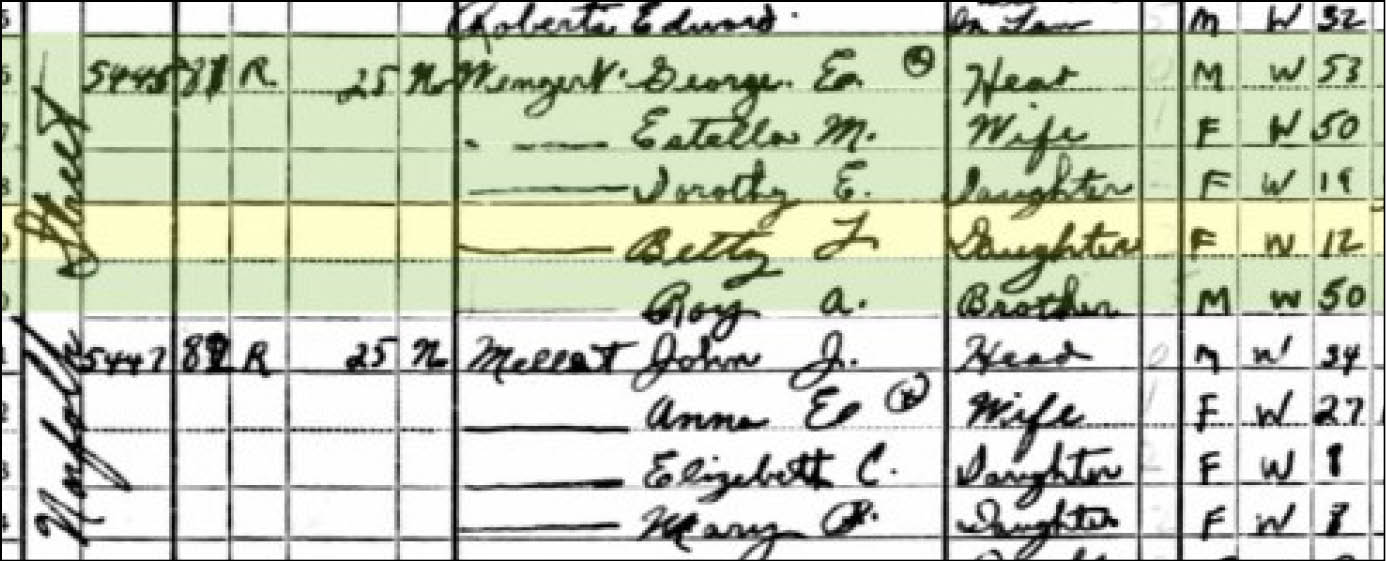 Roberts Edward. In Law M W 32
5445 81 R 25 No Wengert George. E. Head M W 53
Estella M. Wife F W 50
Dorothy E. Daughter F W 19
Betty L Daughter F W 12
Roy A. Brother M W 50
5447 82 R 25 No John J. Head M W 34
Anna E Wife F W 27
Elizabeth C. Daughter F W
Mary Daughter F W
Norfolk Street